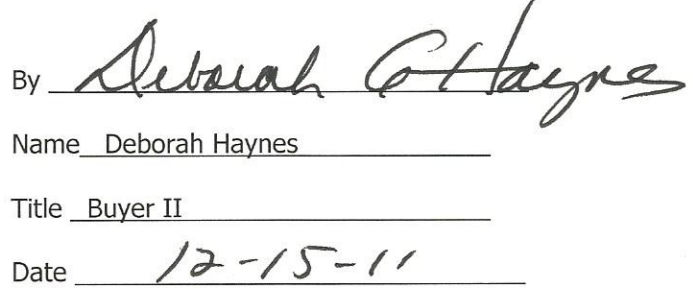 By Deborah G Haynes
Name Deborah Haynes
Title Buyer II
Date 12-15-11